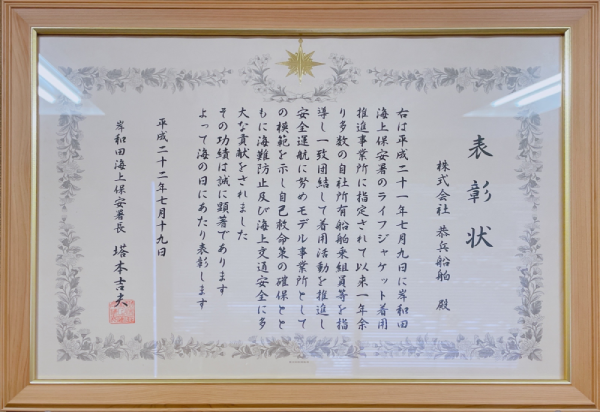 表彰状
株式会社 恭兵船舶 殿
右は平成二十一年七月九日に岸和田
海上保安署のライフジャケット着用
推進事業所に指定されて以来一年余
り多数の自社所有船舶乗組員等を指
導し一致団結して着用活動を推進し
安全運航に努めモデル事業所として
の模範を示し自己救命策の確保とと
もに海難防止及び海上交通安全に多
大な貢献をされました
その功績は誠に顕著であります
よって海の日にあたり表彰します
平成二十二年七月十九日
岸和田海上保安署長 塔本吉夫